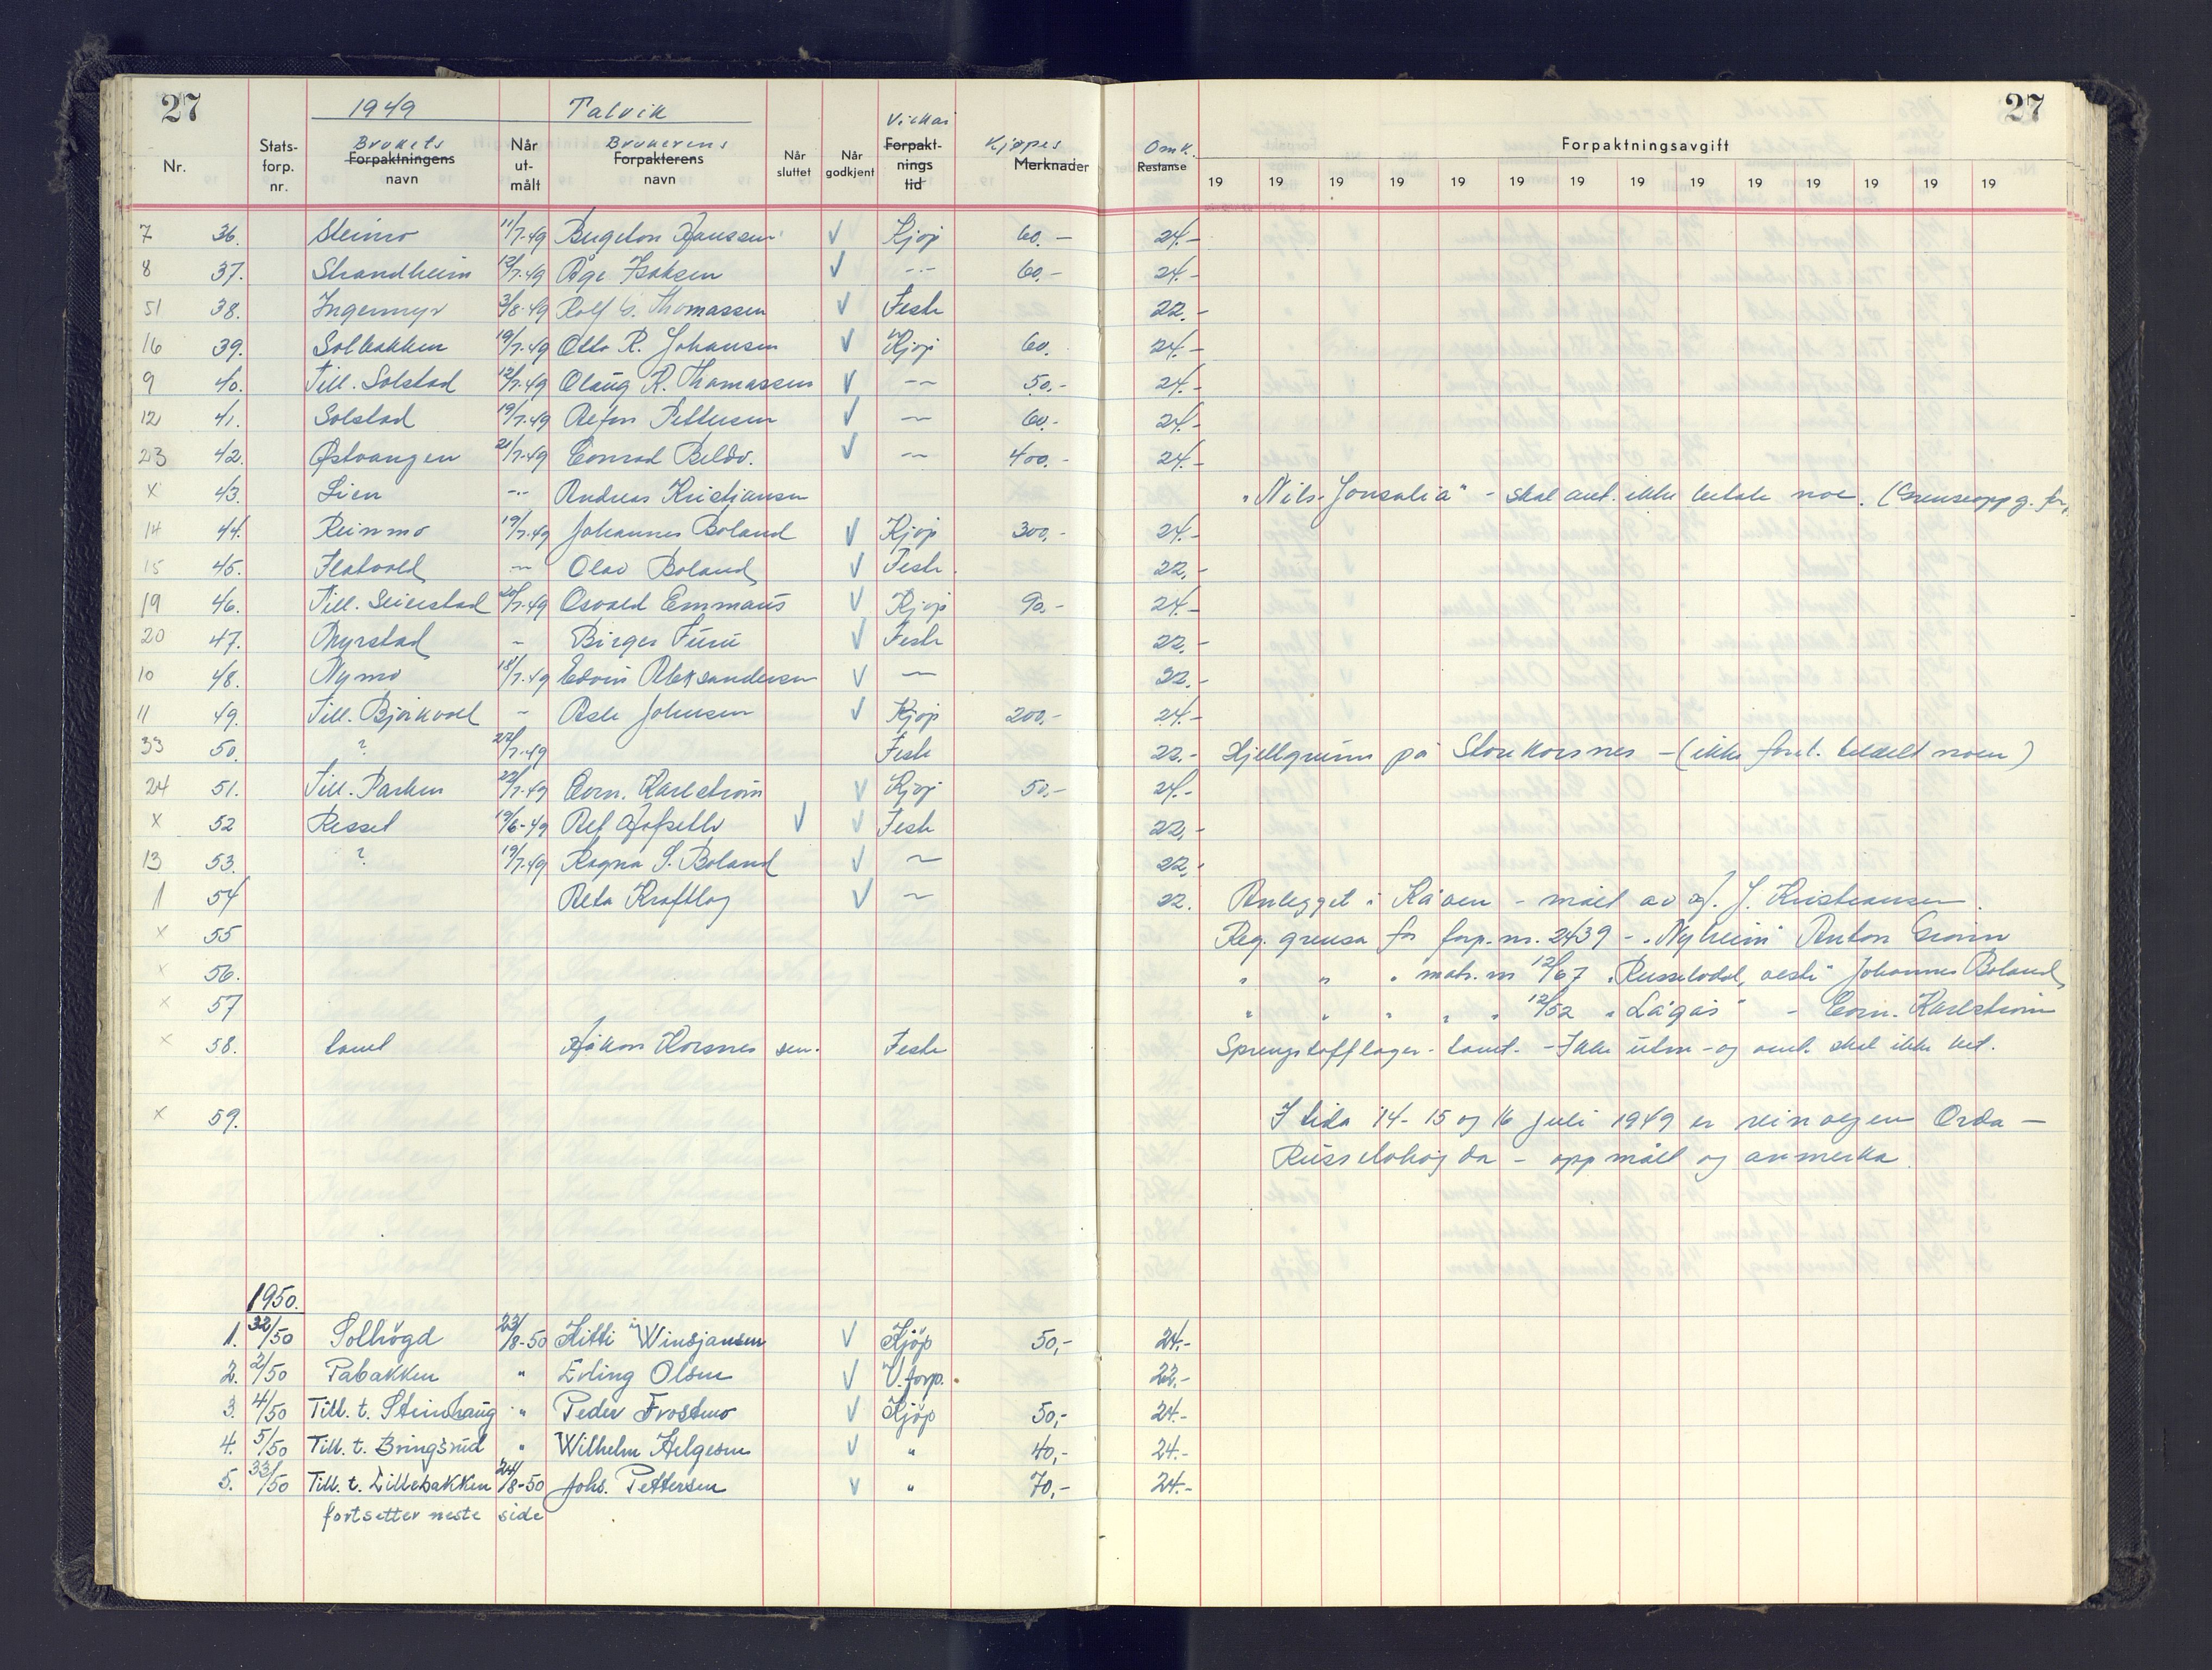 27 1949 Talvik 27
Nr. Stats-forp. nr. Brukets Forpaktningens navn Når ut-målt Brukerens Forpakterens navn Når sluttet Når godkjent Vilkår Forpakt-nings tid Kjøpes Merknader Omk. Restanse Forpaktningsavgift
19 19 19 19 19 19 19 19 19 19 19 19 19 19
7 36. Steinmo 11/7-49 Hanssen V Kjøp 60.- 24.-
8 37. Strandheim 12/7-49 Åge Isaksen V -"- 60.- 24.-
51 38. Ingenmyr 3/8-49 Rolf Thomassen V Feste 22.-
16 39. Solbakken 19/7-49 Otto R. Johansen V Kjøp 60. 24.-
9 40. Till. Solstad 12/7-49 Olaug R. Thomassen V -"- 50.- 24.-
12 41. Solstad 19/7-49 Pettersen V -"- 60.- 24.-
23 42. Østvangen 21/7-49 Conrad Beldo. V -"- 400.- 24.-
x 43. Lien -"- Andreas Kristjansen "Nils-Jonsalia" - skal ant. ikke betale noe. (Grenseoppg. for.
14 44. Reinmo 19/7-49 Johannes Boland V Kjøp 300.- 24.-
15 45. Flatvold -"- Olav Boland V Feste. 22.-
19 46. Till. Seierstad 20/7-49 Osvald Emmaus V Kjøp 90.- 24.-
20 47. Myrstad - Birger Furu V Feste 22.-
10 48. Nymo 18/7-49 Edvin Aleksandersen V -"- 22.-
11 49. Till. Bjørkvoll - Asle Johnsen V Kjøp 200.- 24.-
33 50. ? 22/7-49 Feste 22.- Fjellgrunn på Storekorsnes - (ikke forel. tildelt noen)
24 51. Till. Parken 22/7-49 Corn. Karlstrøm V Kjøp 50.- 24.-
x 52 Resset 19/6-49 V V Feste 22.-
13 53. ? 19/7-49 Ragna S. Boland V -"- 22.-
1 54 Alta Kraftlag V -"- 22. Anlegget i Kåven - målt av J. Kristiansen.
x 55 Reg. grensa for forp. nr. 2439 - "Nyheim" Anton
x 56. " " " matr. nr 12/67 "Russelvdal, vestli" Johannes Boland
x 57 " " " " " 12/52 "Lågås" - Corn. Karlstrøm
x 58. tomt Håkon Korsnes sen. Feste Sprengstofflager-tomt. - Ikke utm - og ant. skal ikke bet.
x 59. I tida 14-15 og 16 juli 1949 er reinvegen Orda -
Russelvhøgda - oppmålt og anmerka
1950.
1. 32/50 Solhögd 23/8-50 Kitti Winsjansen V Kjöp 50,- 24.-
2. 2/50 Pabakken " Erling Olsen V V. forp. 22.-
3. 4/50 Till. t. Steinhaug " Peder Frostmo V Kjöp 50,- 24.-
4. 5/50 Till. t. Bringsrud " Wilhelm Helgesen V " 40,- 24.-
5. 33/50 Till. t. Lillebakken 24/8-50 Johs. Pettersen V " 70,- 24.-
fortsetter neste side